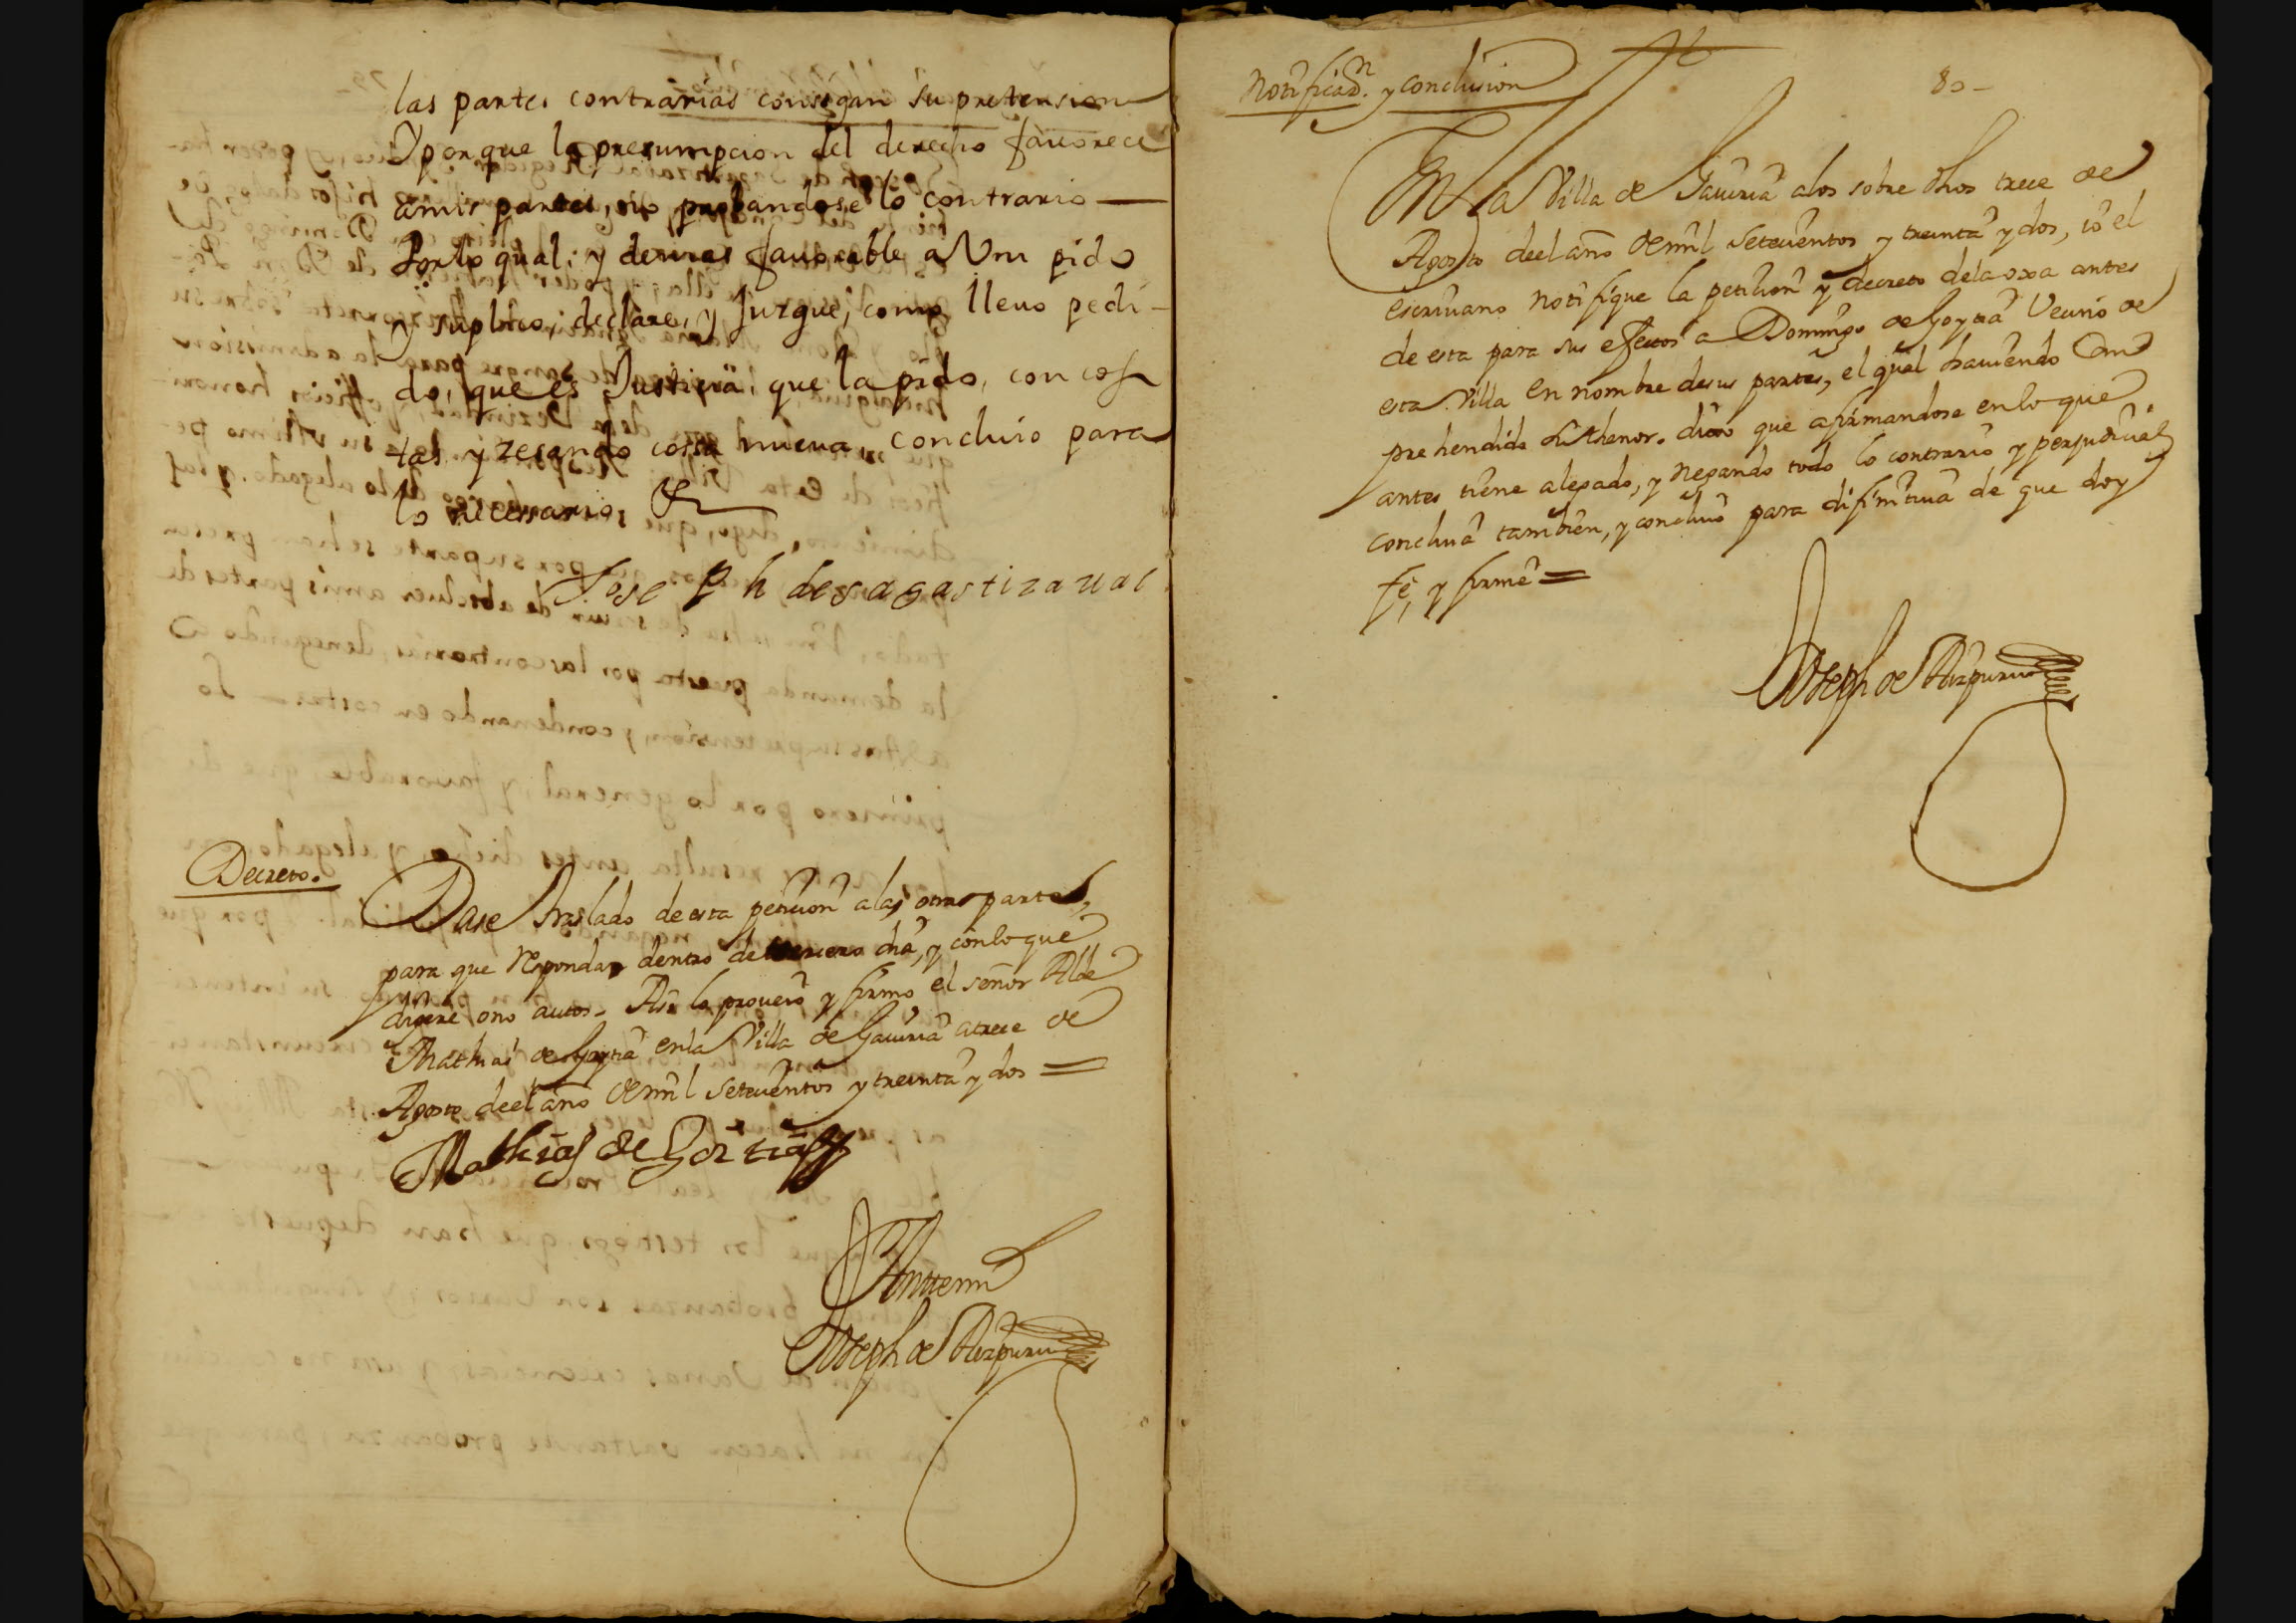 las partes contrarias consigan su pretension
Y porque la presumpcion del derecho fauorece
a mis partes, no probandose lo contrario —
Por lo qual, y demas fauorable a Vm pido
y suplico, declare, y Juzgue, como lleuo pedi-
do, que es Justicia, que la pido, con cos-
tas, y zesando cossa nueua, concluio para
lo necessario, &
Joseph de sagastizaual
Decreto.
Dase traslado de esta peticion a las otras partes,
para que respondan dentro de tercero dia, y con lo que
dijere o no autos. Asi lo proueio y firmo el señor Alde
Mathias de Goytia en la Villa de Gauiria a trece de
Agosto de el año de mil setecientos y treinta y dos =
Mathias de Goitia
Ante mi
Joseph de Aizpuru
80-
Notificaon. y conclusion
En la Villa de Gauiria a los sobre dhos trece de
Agosto de el año de mil setecientos y treinta y dos, io el
escriuano notifique la peticion y decreto de la oxa antes
de esta para sus efectos a Domingo de Goytia Vecino de
esta Villa en nombre de sus partes, el qual hauiendo Com
prehendido su thenor. dixo que afirmandose en lo que
antes tiene alegado, y negando todo lo contrario y perjudicial
concluia tambien, y concluio para difinitiua de que doy
fe, y firme =
Joseph de Aizpuru